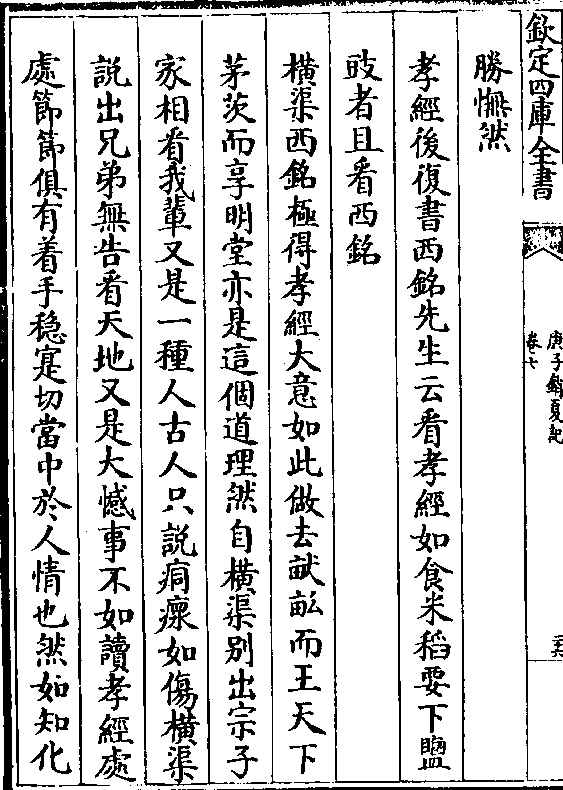 欽定四庫全書
勝憮然
孝經後復書西銘先生云看孝經如食米稻要下鹽
豉者且看西銘
橫渠西銘極得孝經大意如此做去畎畝而王天下
茅茨而享明堂亦是這個道理然自橫渠别出宗子
家相看我輩又是一種人古人只說痌瘝如傷橫渠
說出兄弟無告看天地又是大憾事不如讀孝經處
處節節俱有着手穩寔切當中於人情也然如知化
庚子銷夏記
卷七